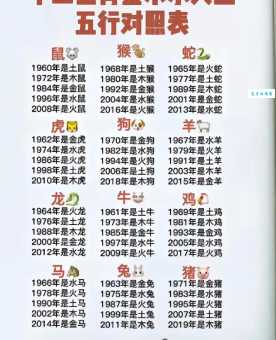 五行对照表
鼠 猴 蛇
1960年是土鼠 1968年是土猴 1965年是火蛇
1972年是木鼠 1980年是木猴 1977年是土蛇
1984年是金鼠 1992年是金猴 1989年是木蛇
1996年是水鼠 2004年是水猴 2001年是金蛇
2008年是火鼠 2016年是火猴 2013年是水蛇
虎 狗 羊
1962年是金虎 1970年是金狗 1967年是水羊
1974年是水虎 1982年是水狗 1979年是火羊
1986年是火虎 1994年是火狗 1991年是土羊
1998年是土虎 2006年是土狗 2003年是木羊
2010年是木虎 2018年是木狗 2015年是金羊
龙 牛 鸡
1964年是火龙 1961年是土牛 1969年是土鸡
1976年是土龙 1973年是木牛 1981年是木鸡
1988年是木龙 1985年是金牛 1993年是金鸡
2000年是金龙 1997年是水牛 2005年是水鸡
2012年是水龙 2009年是火牛 2017年是火鸡
马 兔 猪
1966年是水马 1963年是金兔 1971年是金猪
1978年是火马 1975年是水兔 1983年是水猪
1990年是土马 1987年是火兔 1995年是火猪
2002年是木马 1999年是土兔 2007年是土猪
2014年是金马 2011年是木兔 2019年是木猪